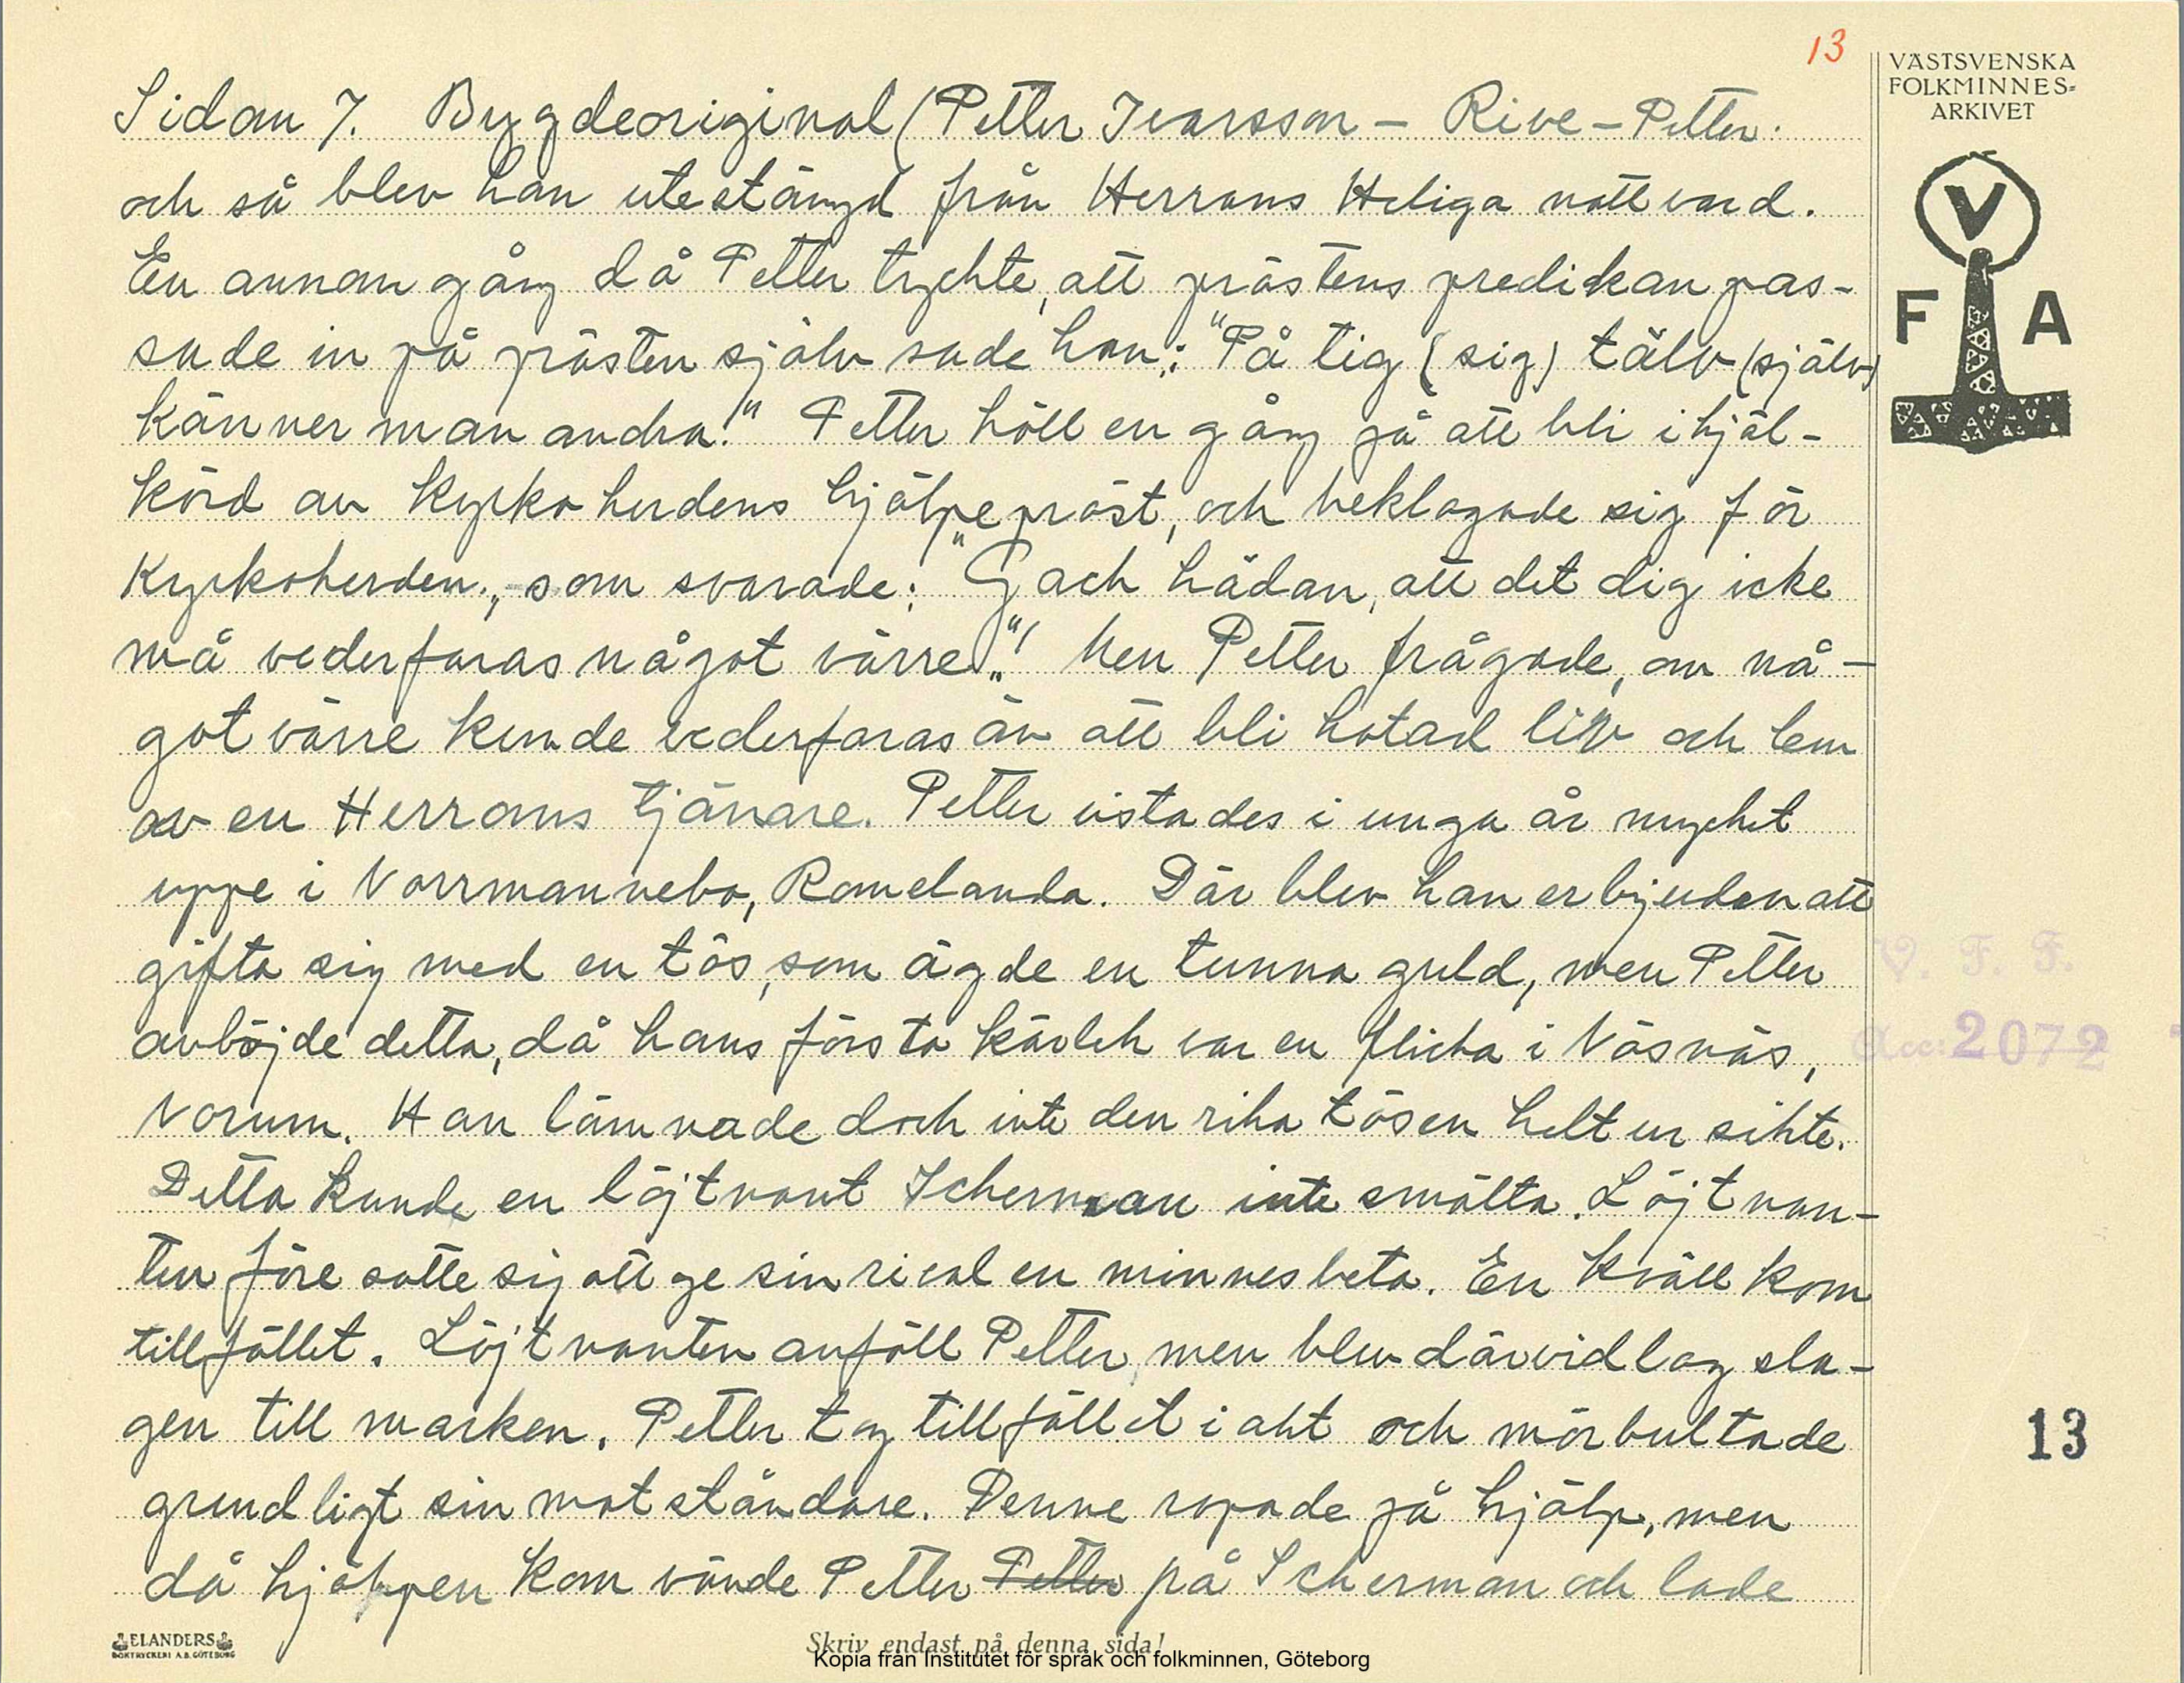 13
VÄSTSVENSKA
FOLKMINNES=
ARKIVET
V
F A
Sidan 7. Bygdeoriginal (Petter Ivarsson – Rive-Petter.
och så blev han utestängd från Herrans Heliga nattvard.
En annan gång då Petter tyckte, att prästens predikan pas-
sade in på prästen själv sade han: "På tig (sig) tälv (själv)
känner man andra!" Petter höll en gång på att bli ihjäl-
körd av kyrkoherdens hjälpepräst, och beklagade sig för
Kyrkoherden, som svarade: "Gack hädan, att det dig icke
må vederfaras något värre"! Men Petter frågade, om nå-
got värre kunde vederfaras än att bli hotad liv och lem
av en Herrans tjänare. Petter vistades i unga år mycket
uppe i Norrmannebo, Romelanda. Där blev han erbjuden att
gifta sig med en tös, som ägde en tunna guld, men Petter
avböjde detta, då hans första kärlek var en flicka i Näsnäs,
Norum. Han lämnade dock inte den rika tösen helt ur sikte.
Detta kunde en löjtnant Scherman inte smälta. Löjtnan-
ten före satte sig att ge sin rival en minnesbeta. En kväll kom
tillfället. Löjtnanten anföll Petter, men blev därvidlag sla-
gen till marken. Petter tog tillfället i akt och mörbultade
grundligt sin motståndare. Denne ropade på hjälp, men
då hjälpen kom vände Petter Petter på Scherman och lade
V. F. F.
Acc: 2072
13
ELANDERS
BOKTRYCKERI A.B. GÖTEBORG
Skriv endast på denna sida!
Kopia från Institutet för språk och folkminnen, Göteborg